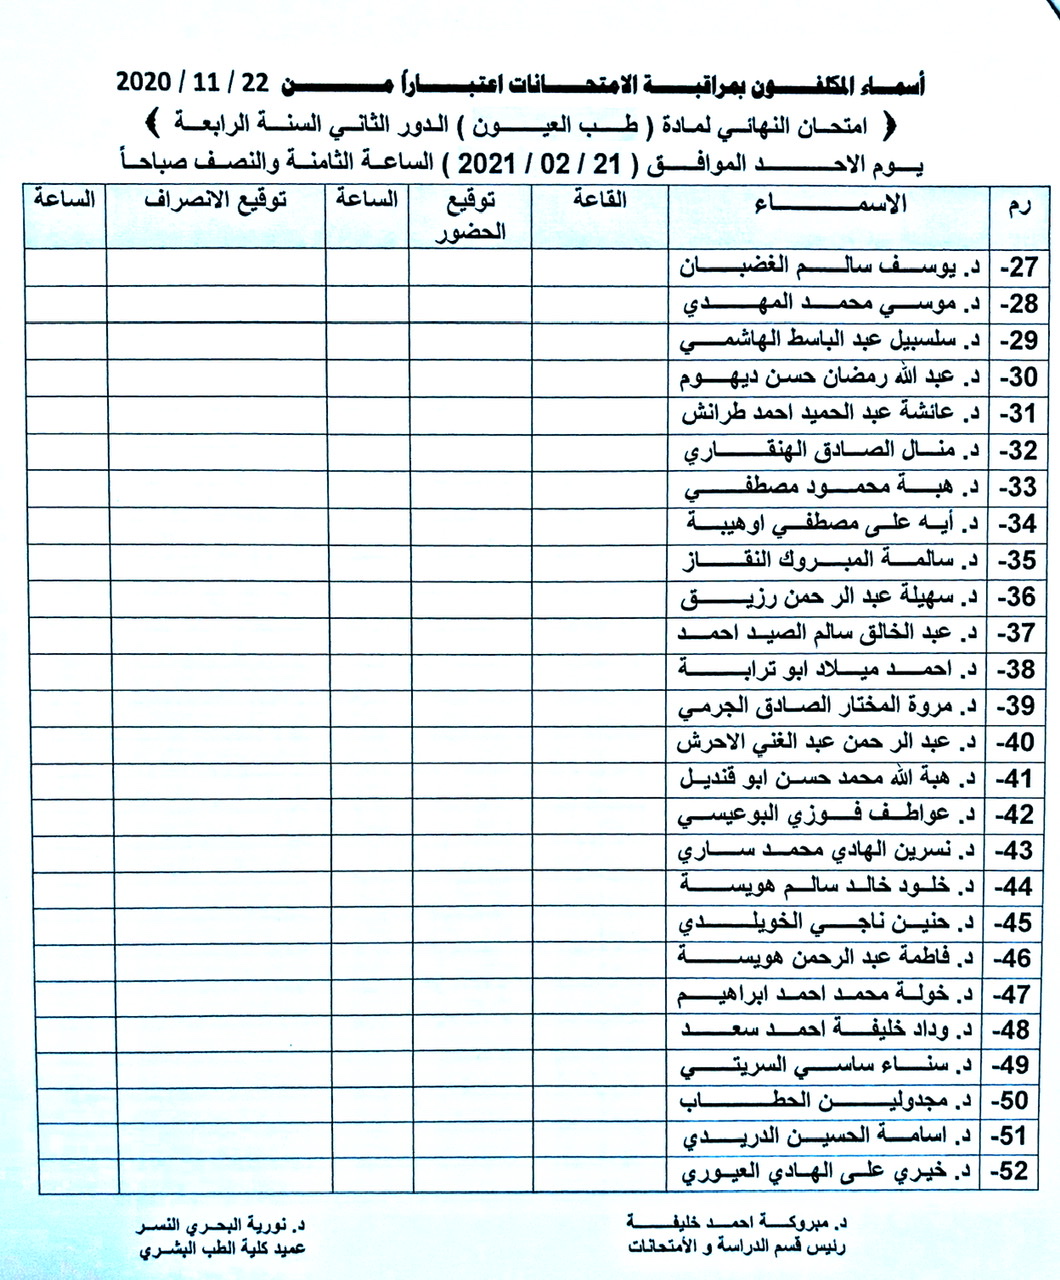 أسماء المكلفون بمراقبة الامتحانات اعتباراً من 22 / 11 / 2020
﴿ امتحان النهائي لمادة ( طب العيون ) الدور الثاني السنة الرابعة ﴾
يوم الاحد الموافق ( 21 / 02 / 2021 ) الساعة الثامنة والنصف صباحاً
رم الاسماء القاعة توقيع الحضور الساعة توقيع الانصراف الساعة
27- د. يوسف سالم الغضبان
28- د. موسي محمد المهدي
29- د. سلسبيل عبد الباسط الهاشمي
30- د. عبد الله رمضان حسن ديهوم
31- د. عائشة عبد الحميد احمد طرانش
32- د. منال الصادق الهنقاري
33- د. هبة محمود مصطفي
34- د. أيه على مصطفي اوهيبة
35- د. سالمة المبروك النقاز
36- د. سهيلة عبد الر حمن رزيق
37- د. عبد الخالق سالم الصيد احمد
38- د. احمد ميلاد ابو ترابة
39- د. مروة المختار الصادق الجرمي
40- د. عبد الر حمن عبد الغني الاحرش
41- د. هبة الله محمد حسن ابو قنديل
42- د. عواطف فوزي البوعيسي
43- د. نسرين الهادي محمد ساري
44- د. خلود خالد سالم هويسة
45- د. حنين ناجي الخويلدي
46- د. فاطمة عبد الرحمن هويسة
47- د. خولة محمد احمد ابراهيم
48- د. وداد خليفة احمد سعد
49- د. سناء ساسي السريتي
50- د. مجدولين الحطاب
51- د. اسامة الحسين الدريدي
52- د. خيري على الهادي العيوري
د. مبروكة احمد خليفة
رئيس قسم الدراسة و الأمتحانات
د. نورية البحري النسر
عميد كلية الطب البشري